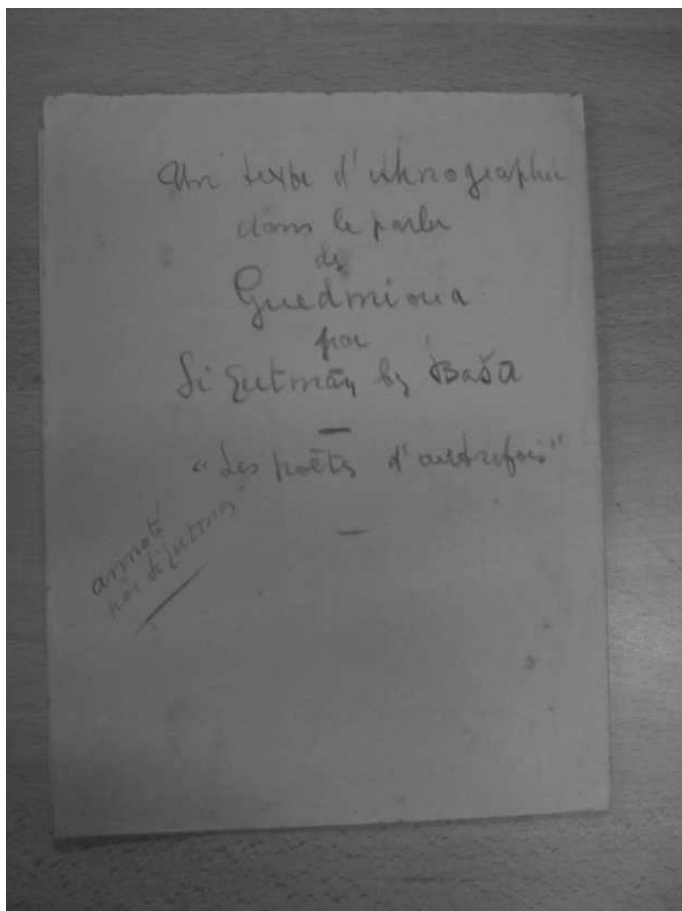 Un texte d'ethnographie
dans le parler
des
Guedmioua
par
Si Ɛutmān bz Bašū
"Les poètes d'autrefois"
annoté
par Si Ɛutman